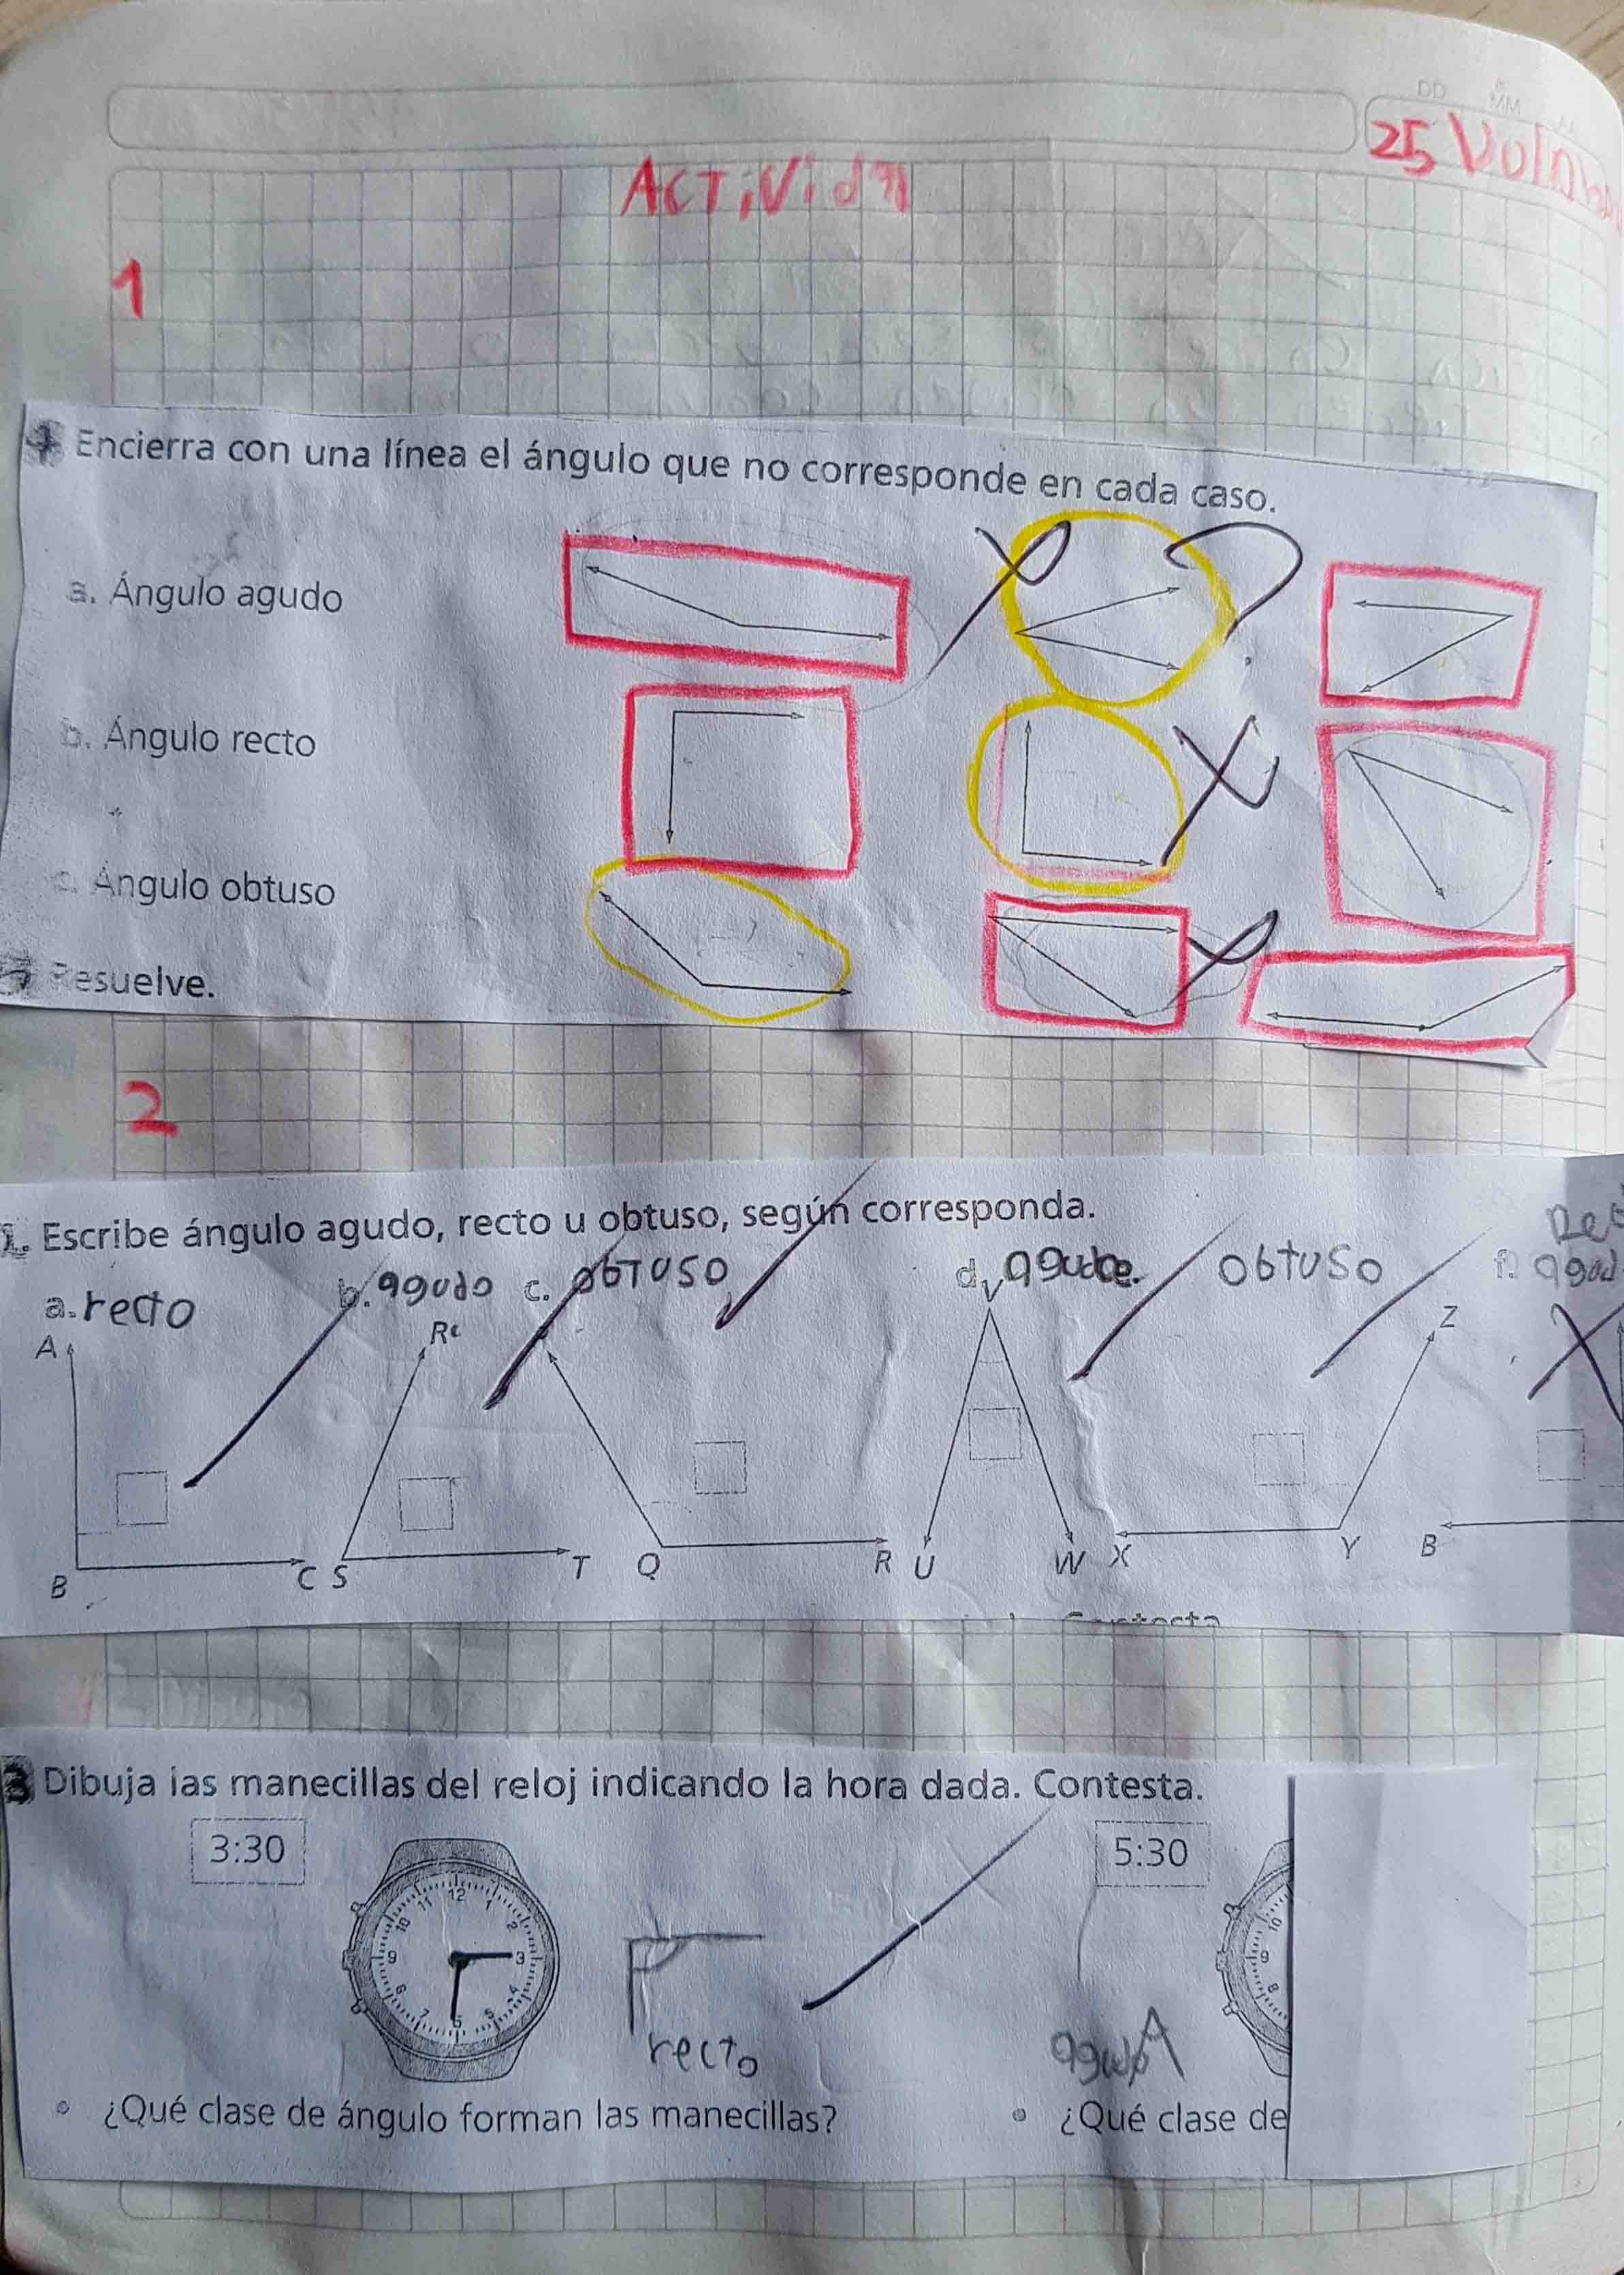 DD MM
25
ACTiVidad
1
Encierra con una línea el ángulo que no corresponde en cada caso.
a. Ángulo agudo
b. Ángulo recto
c. Ángulo obtuso
Resuelve.
2
1. Escribe ángulo agudo, recto u obtuso, según corresponda.
a. recto b. agudo c. obTUSO d. obtuso f.
A R V Z
B C S T Q R U W X Y B
3 Dibuja las manecillas del reloj indicando la hora dada. Contesta.
3:30 5:30
12 1 2 3 4 5 6 7 8 9 10 11
10 9 8
recto agudo
¿Qué clase de ángulo forman las manecillas? ¿Qué clase de